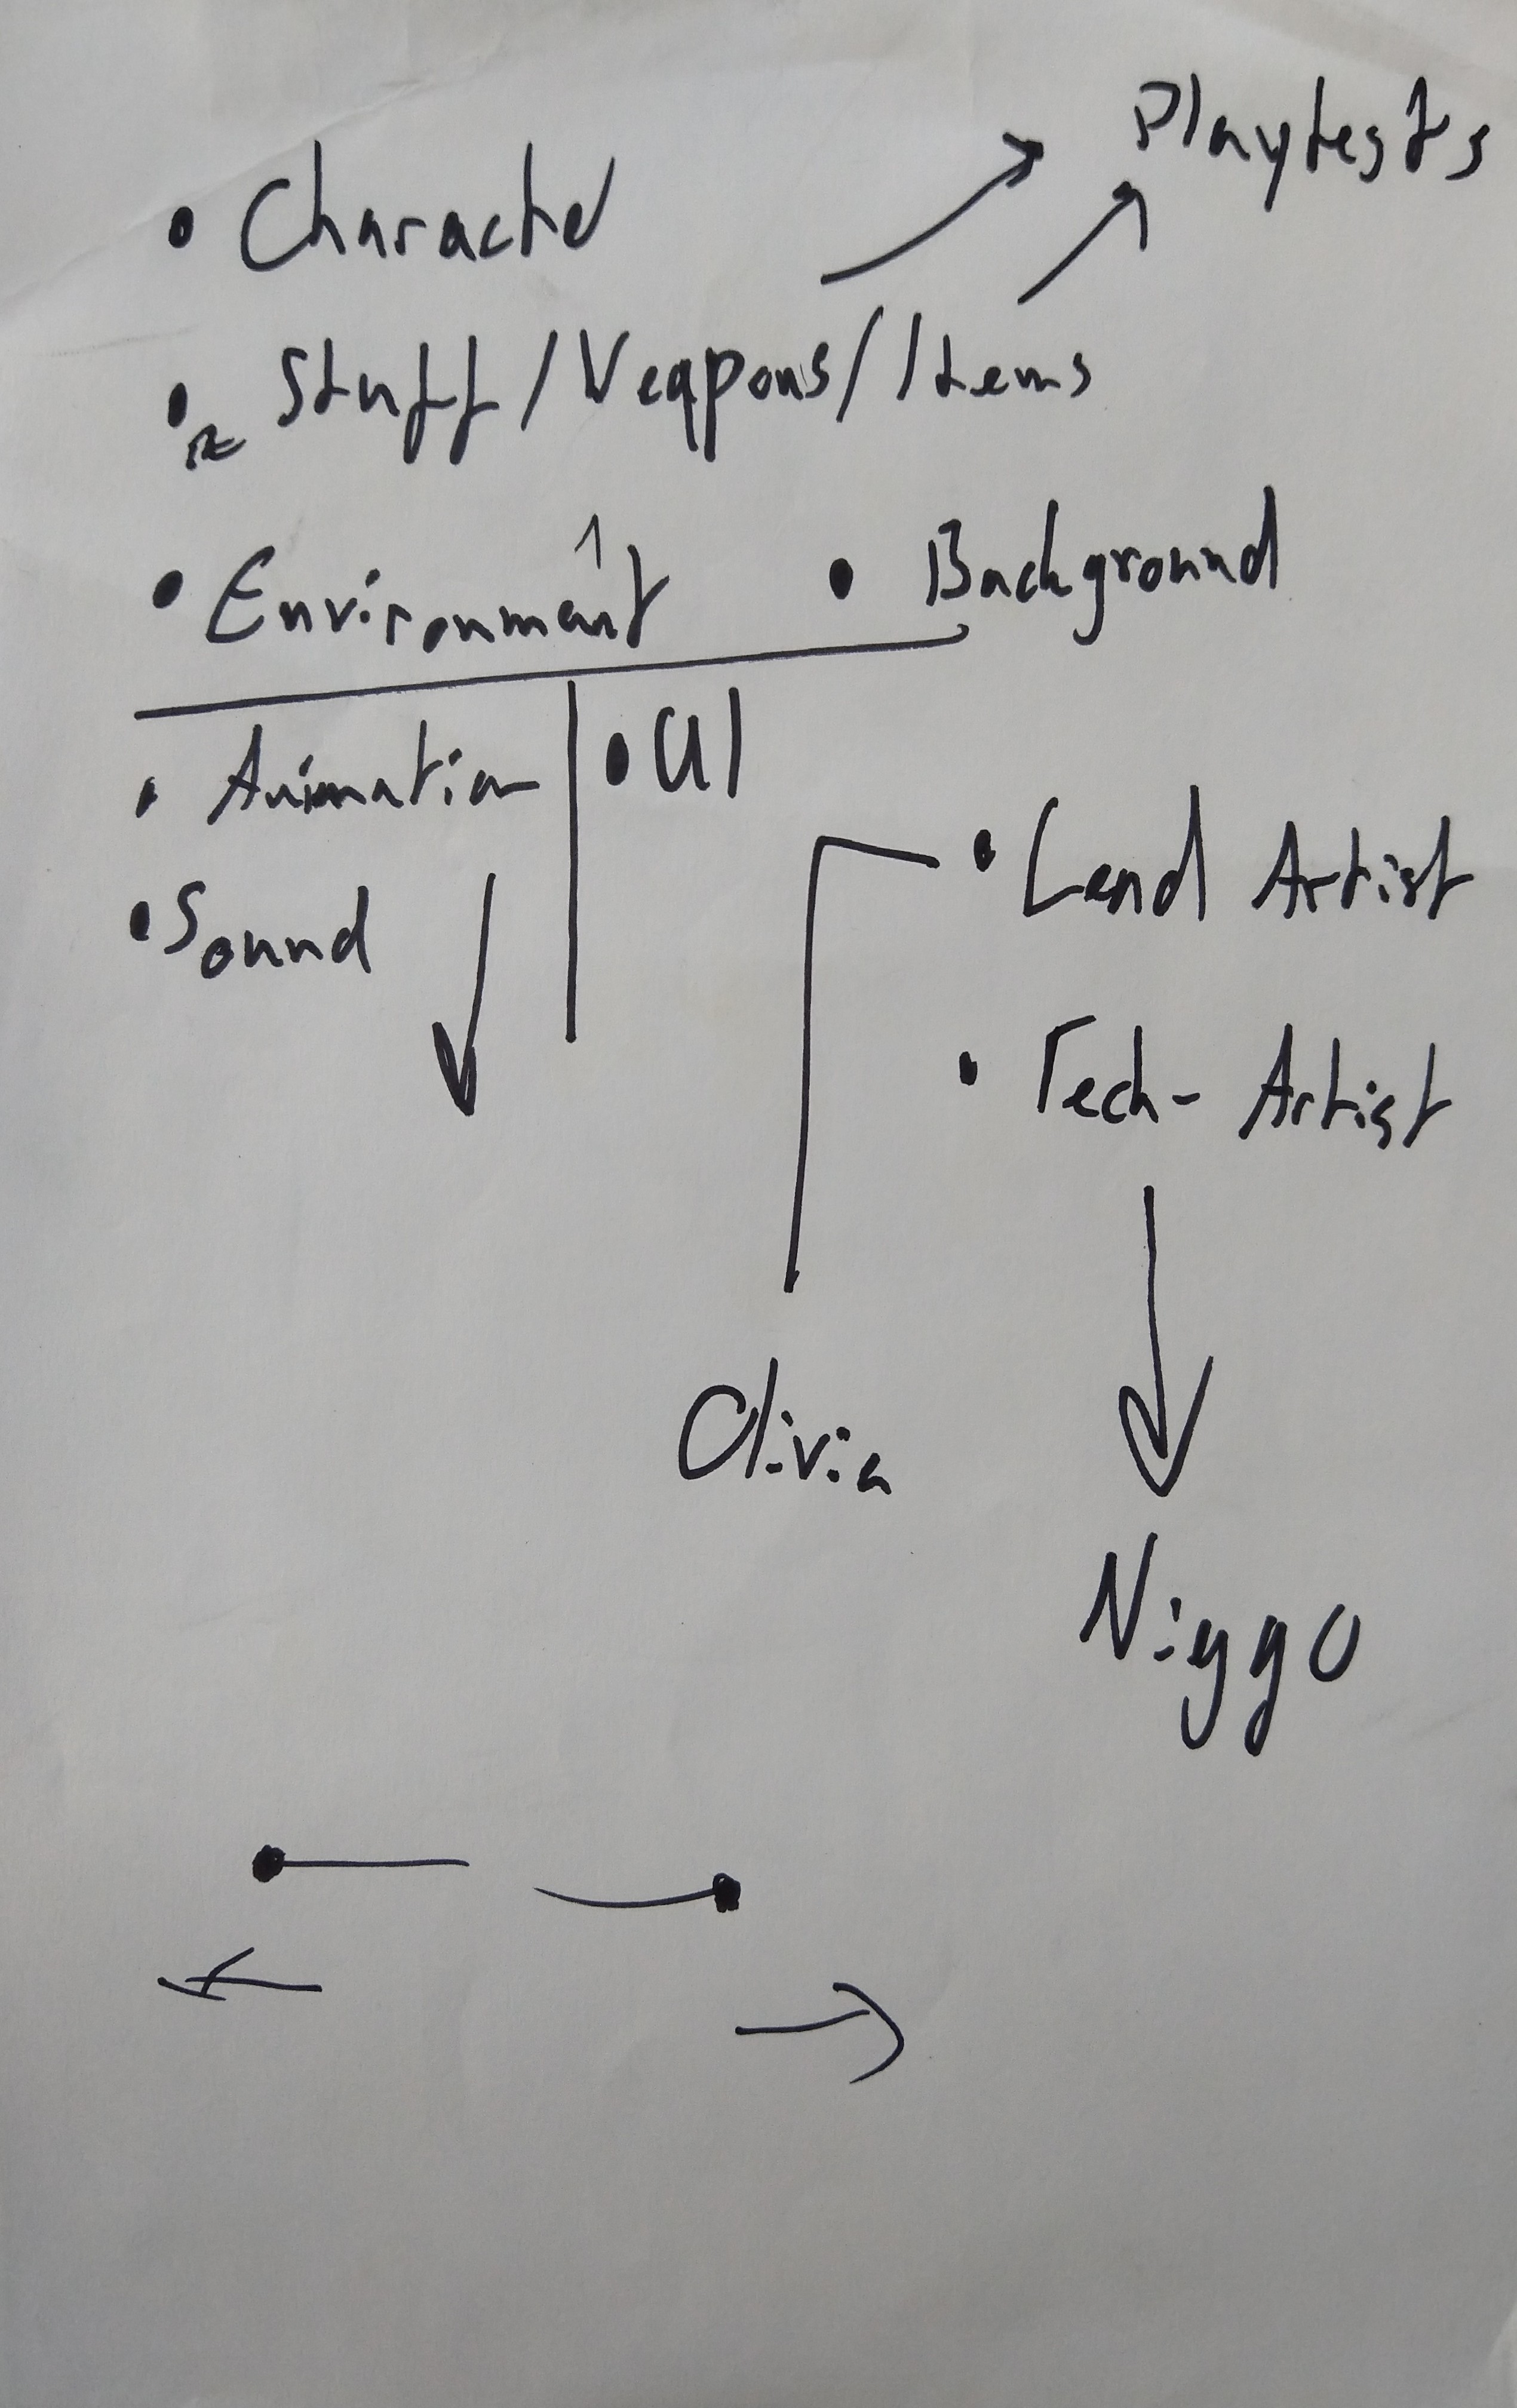 Playtests
• Character
• Stuff / Weapons / Items
• Environment • Background
• Animation • UI
• Sound
• Lead Artist
• Tech-Artist
Olivia
Niggo